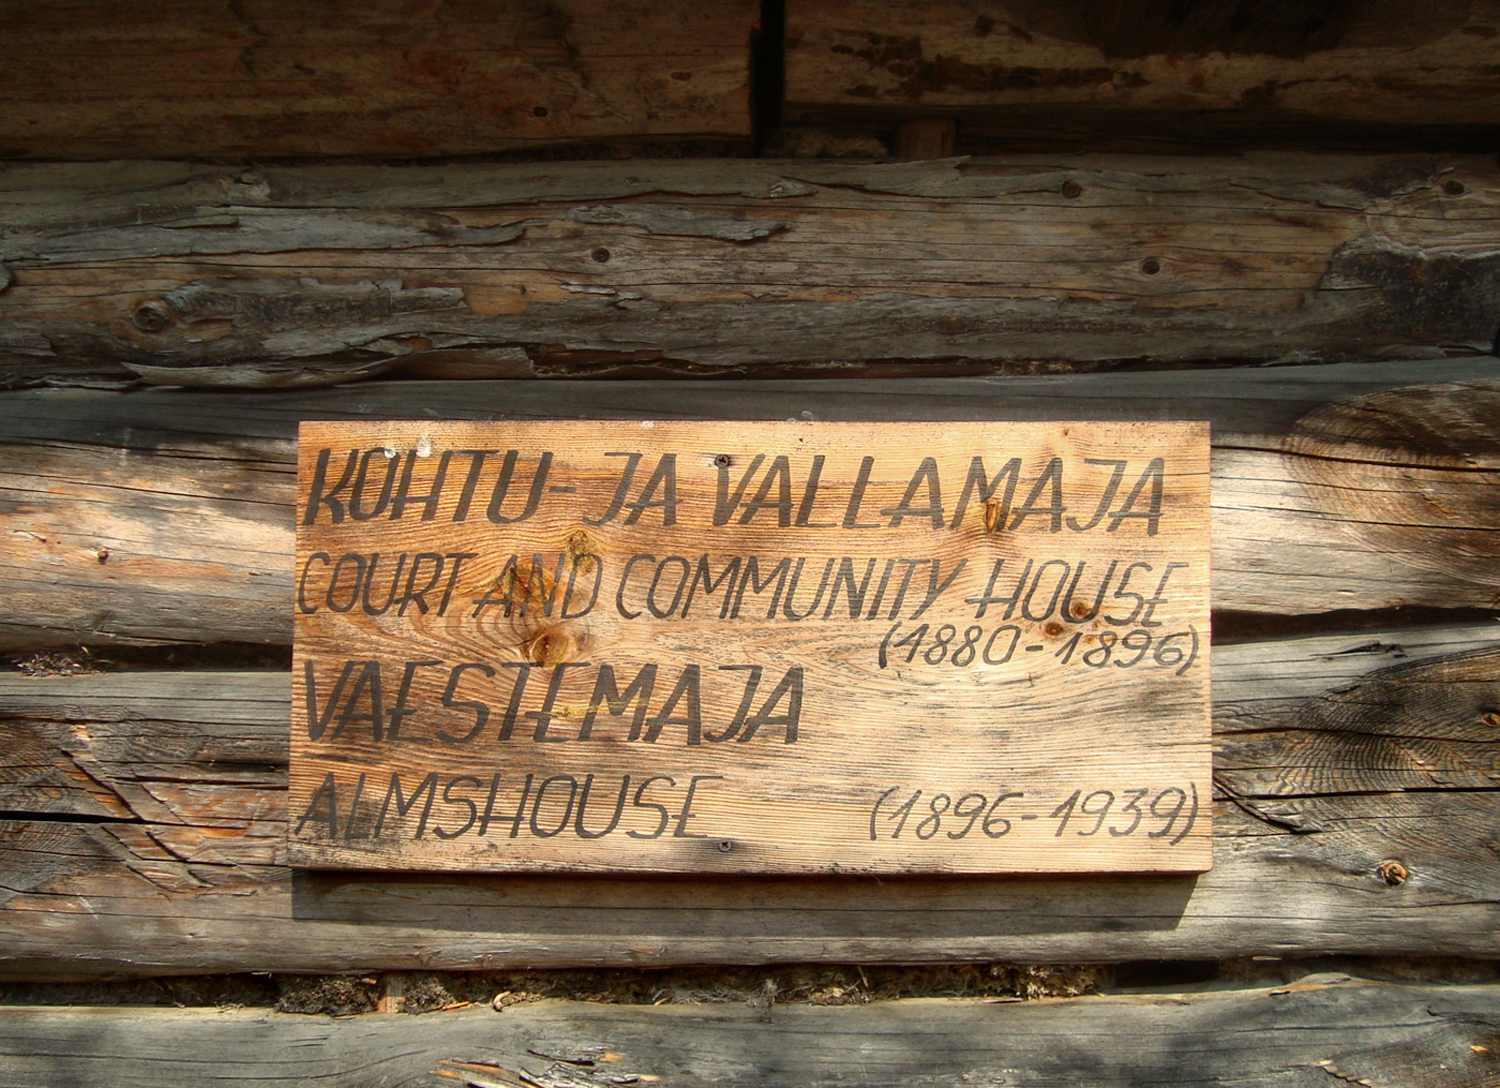 KOHTU- JA VALLAMAJA
COURT AND COMMUNITY HOUSE
(1880-1896)
VAESTEMAJA
ALMSHOUSE (1896-1939)